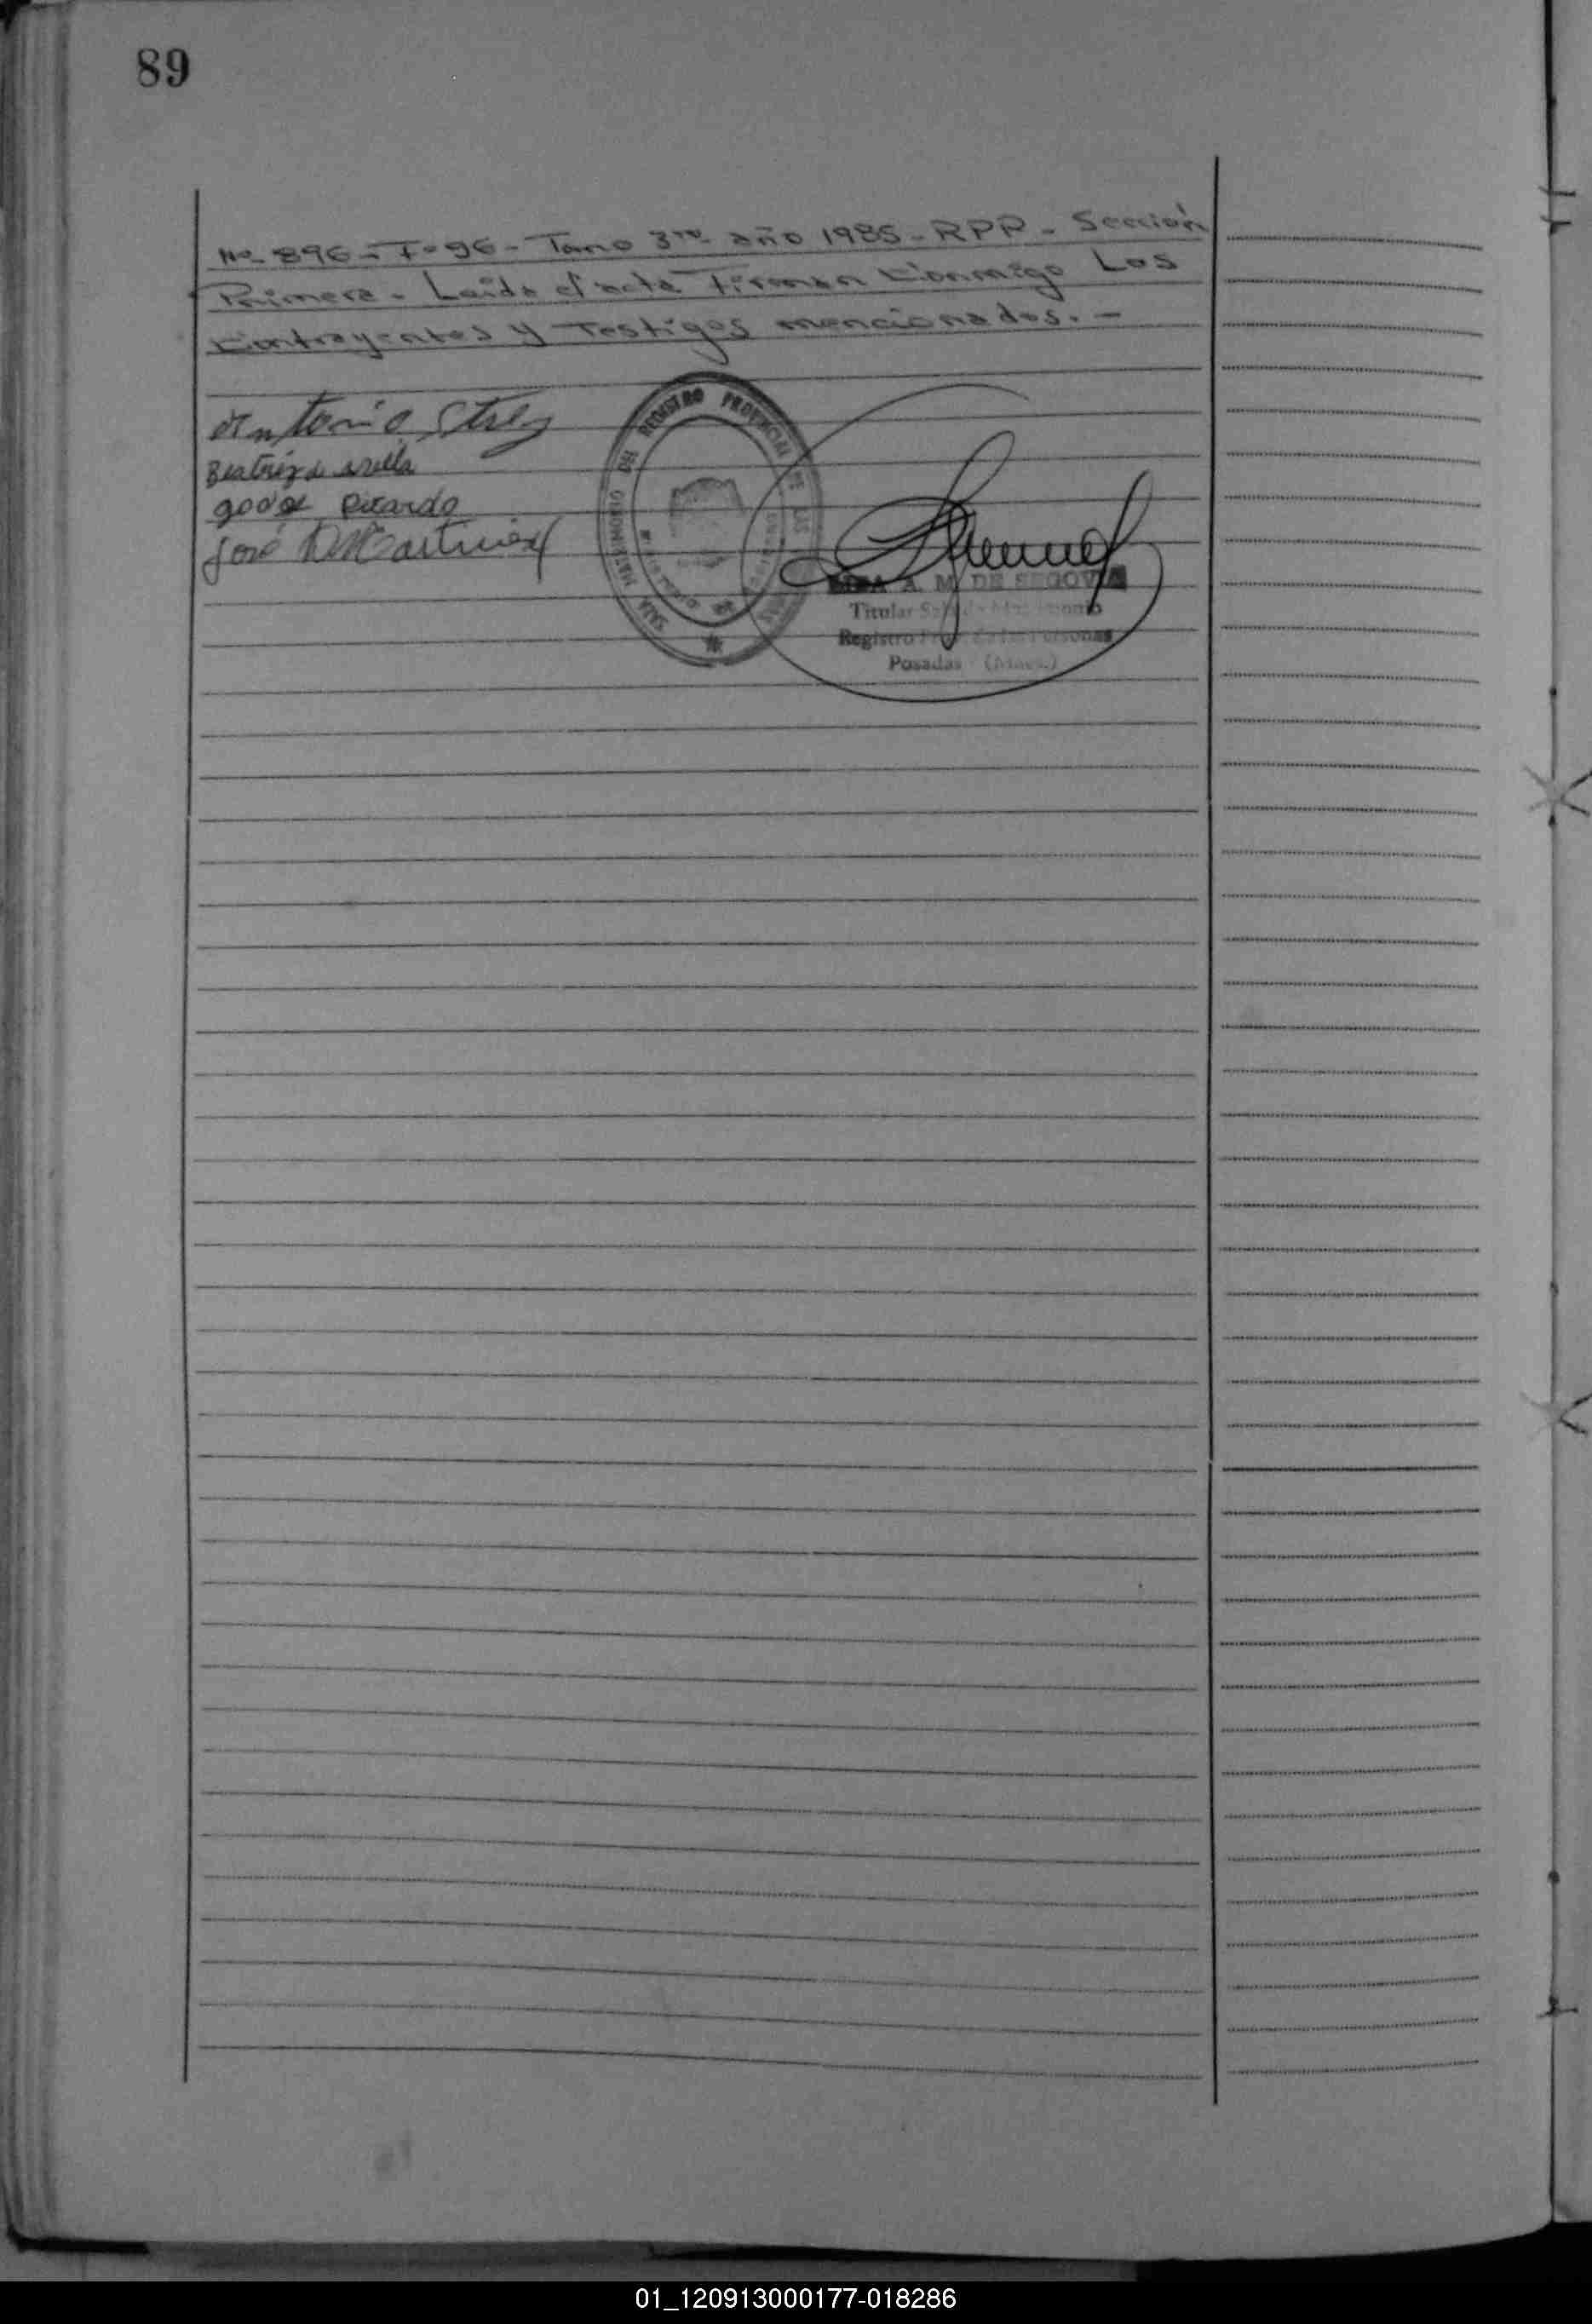 89
Nº 896 - Fº 96 - Tomo 3ro año 1985 - RPP - Sección
Primera - Leída el acta Firman Conmigo Los
Contrayentes y Testigos mencionados. -
Antonio
Beatriz de
Ricardo
José Martinez
DEL REGISTRO PROVINCIAL DE LAS
SALA MATRIMONIO
A. M. DE SEGOVIA
Titular
Registro Personas
Posadas (Mnes.)
01_120913000177-018286